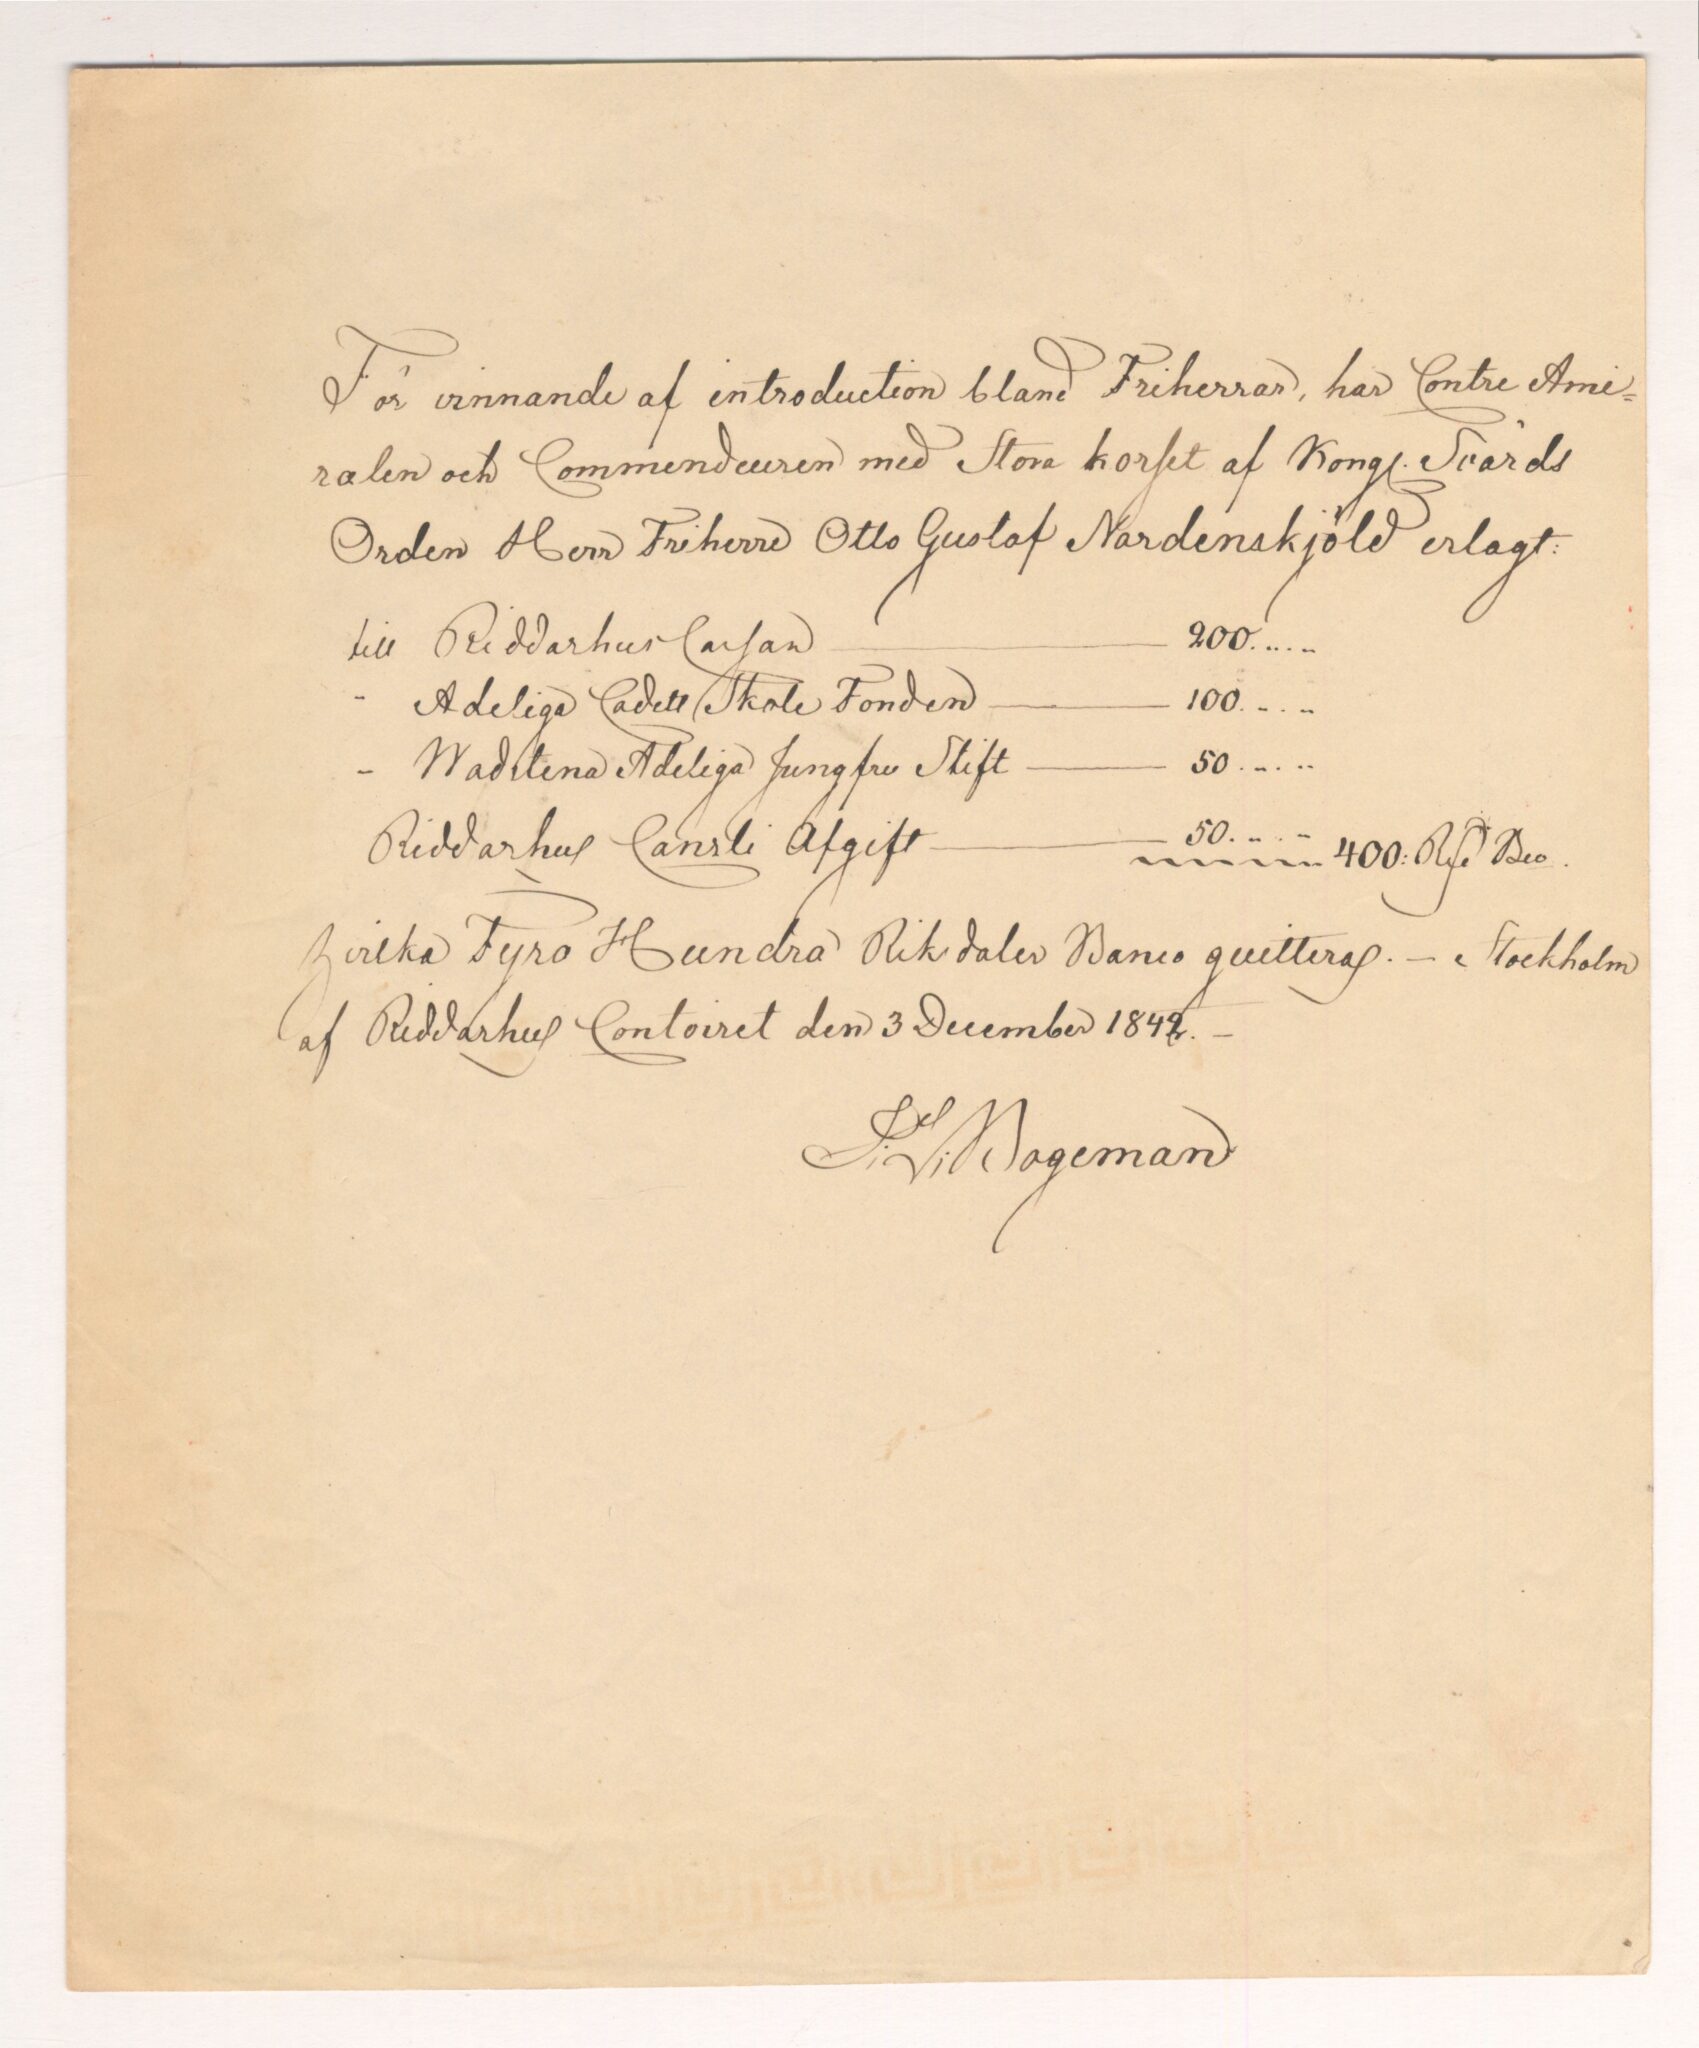 För vinnande af introduction bland Friherrar, har Contre Ami=
ralen och Commendeuren med Stora korset af Kongl. Svärds
Orden Herr Friherre Otto Gustaf Nordenskjöld erlagt:
till Riddarhus Cassan — 200. „ . „
" Adeliga Cadett Skole Fonden — 100. „ . „
" Wadstena Adeliga Jungfru Stift — 50. „ . „
Riddarhus Cansli Afgift — 50. „ . „ 400: Rd Bco.
hvilka Fyra Hundra Riksdaler Banco quitteras. — Stockholm
af Riddarhus Contoiret den 3 December 1842. —
Bogeman